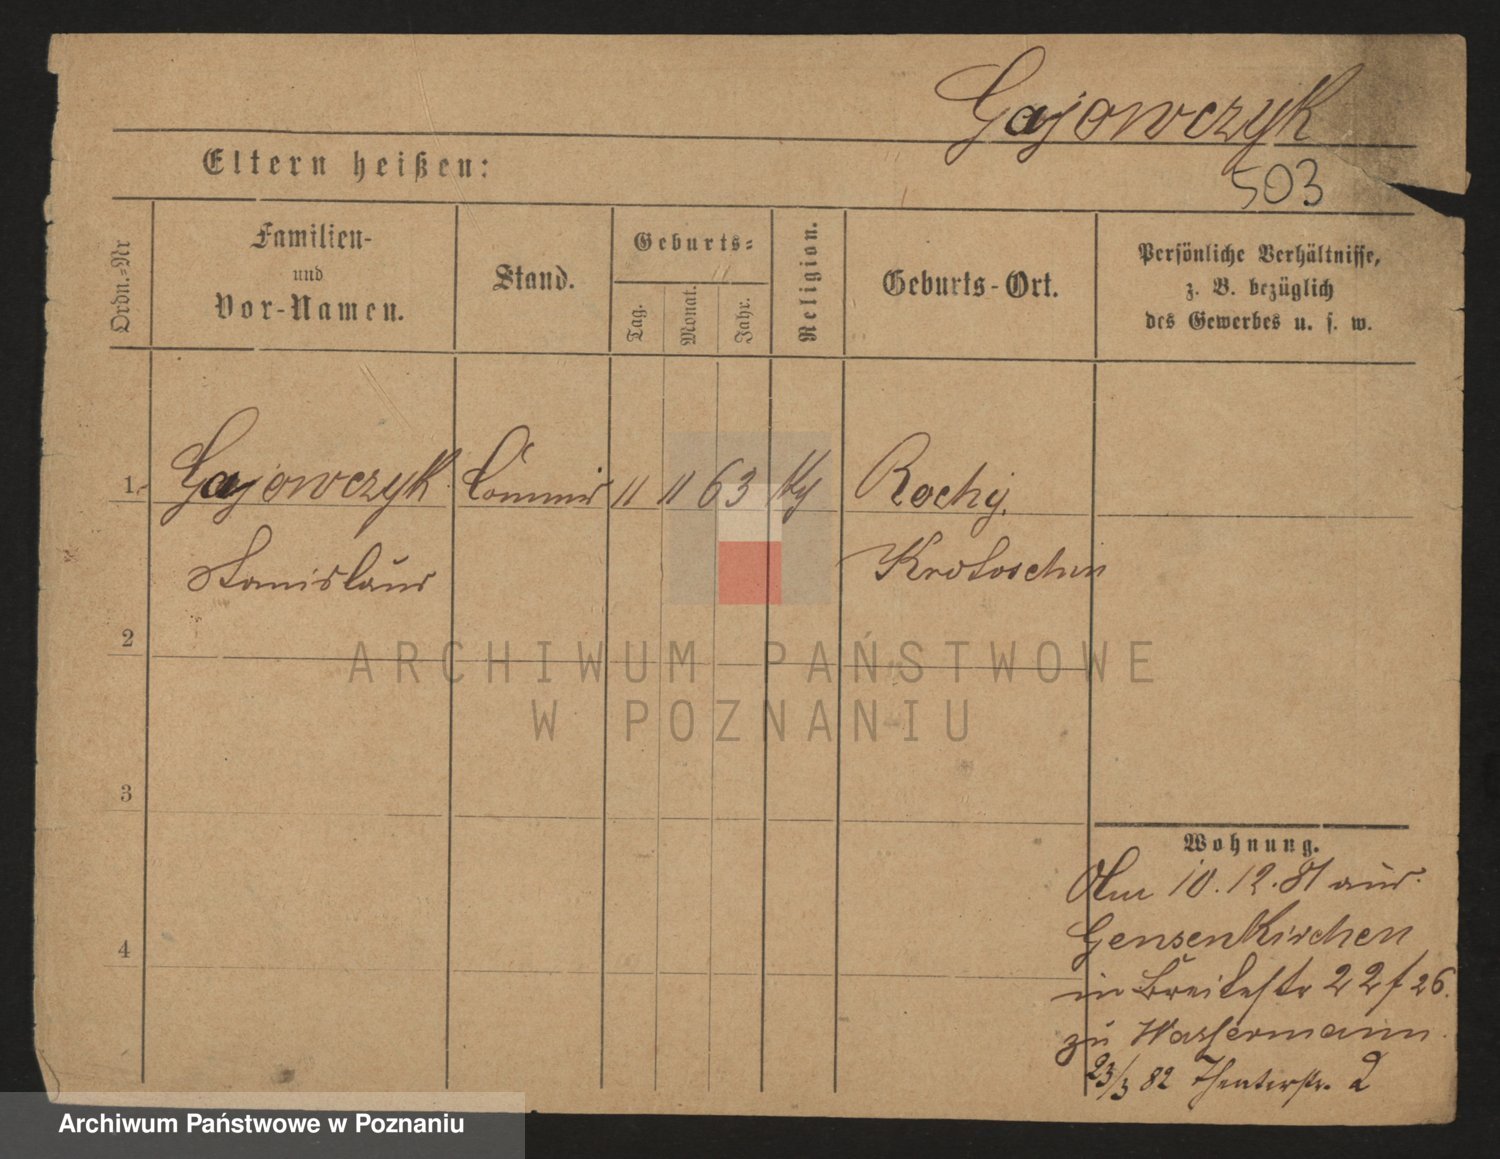 Gajowczyk
503
Eltern heißen:
Ordn.-Nr
Familien-
und
Vor-Namen.
Stand.
Geburts-
Tag.
Monat.
Jahr.
Religion.
Geburts-Ort.
Persönliche Verhältnisse,
z. B. bezüglich
des Gewerbes u. s. w.
1. Gajowczyk Commis 11 11 63 Rochy,
Stanislaus Krotoschin
2
ARCHIWUM PAŃSTWOWE
W POZNANIU
3
Wohnung.
Am 10.12.81 aus
Gensenkirchen
4
in Breitestr 22 / 26.
zu Wassermann.
23/3 82 Theaterstr. 2
Archiwum Państwowe w Poznaniu